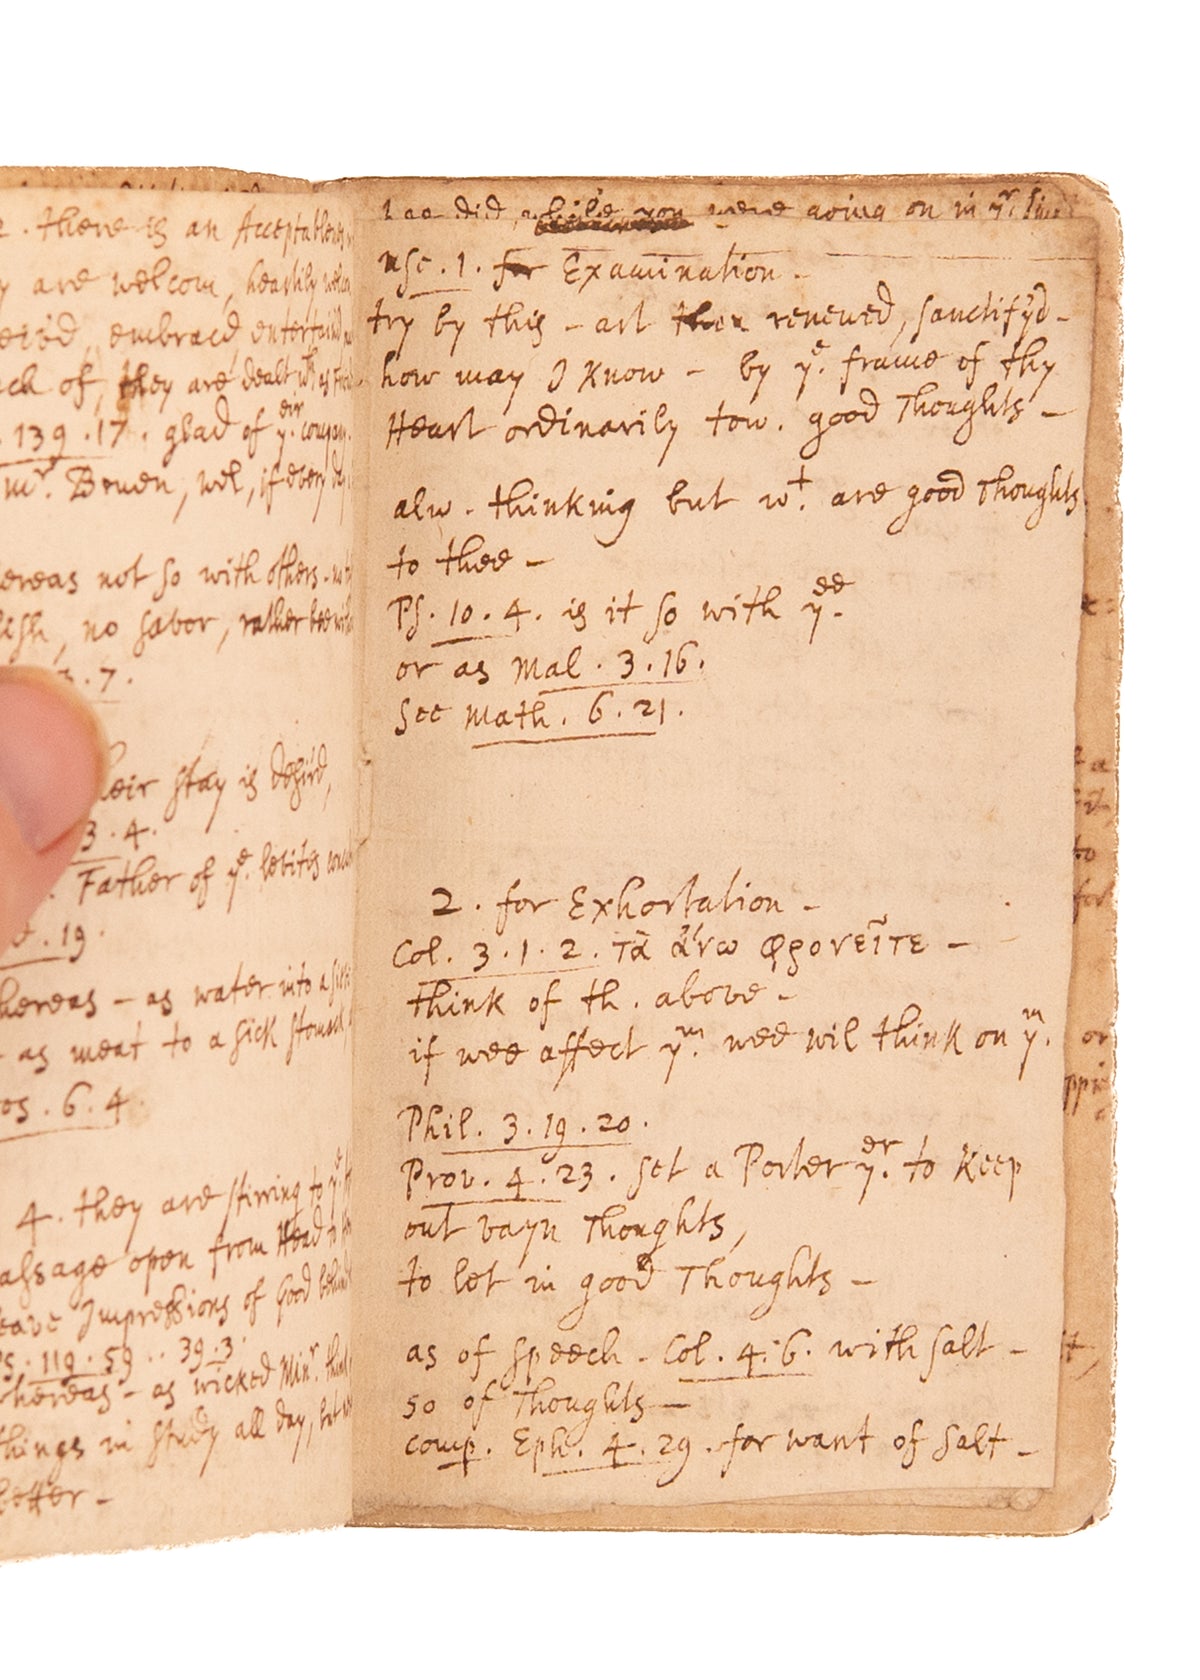 2. there is an Acceptablenes
are welcom, heartily welcom
embrac'd, entertain'd
ack of, they are dealt wth as
139.17. glad of yeir. compan.
mr. Bouen, wel, if every day
hereas not so with others - no
lish, no savor, rather bee
3.7.
their stay is desir'd,
3.4.
Father of ye. levites
19.
whereas - as water into a
as meat to a sick stomach
os. 6.4.
4. they are stirring to ye
assage open from Head to
leave Impressions of Good behind
Ps. 119.59.. 39.3.
whereas - as wicked Minr. think
things in study all day, but
better -
did, while you were going on in yr. sins
use. 1. for Examination -
try by this - art thou renewed, sanctify'd -
how may I know - by ye. frame of thy
Heart ordinarily tow. good Thoughts -
alw. thinking but wt. are good Thoughts
to thee -
Ps. 10.4. is it so with yee.
or as Mal. 3.16.
See math. 6.21.
2. for Exhortation -
Col. 3.1.2. τὰ ἄνω φρονεῖτε -
think of th. above -
if wee affect ym. wee wil think on ym.
Phil. 3.19.20.
Prov. 4.23. set a Porter yer. to keep
out vayn Thoughts,
to let in good Thoughts -
as of speech - Col. 4.6. with salt -
so of Thoughts -
comp. Eph. 4.29. for want of salt -